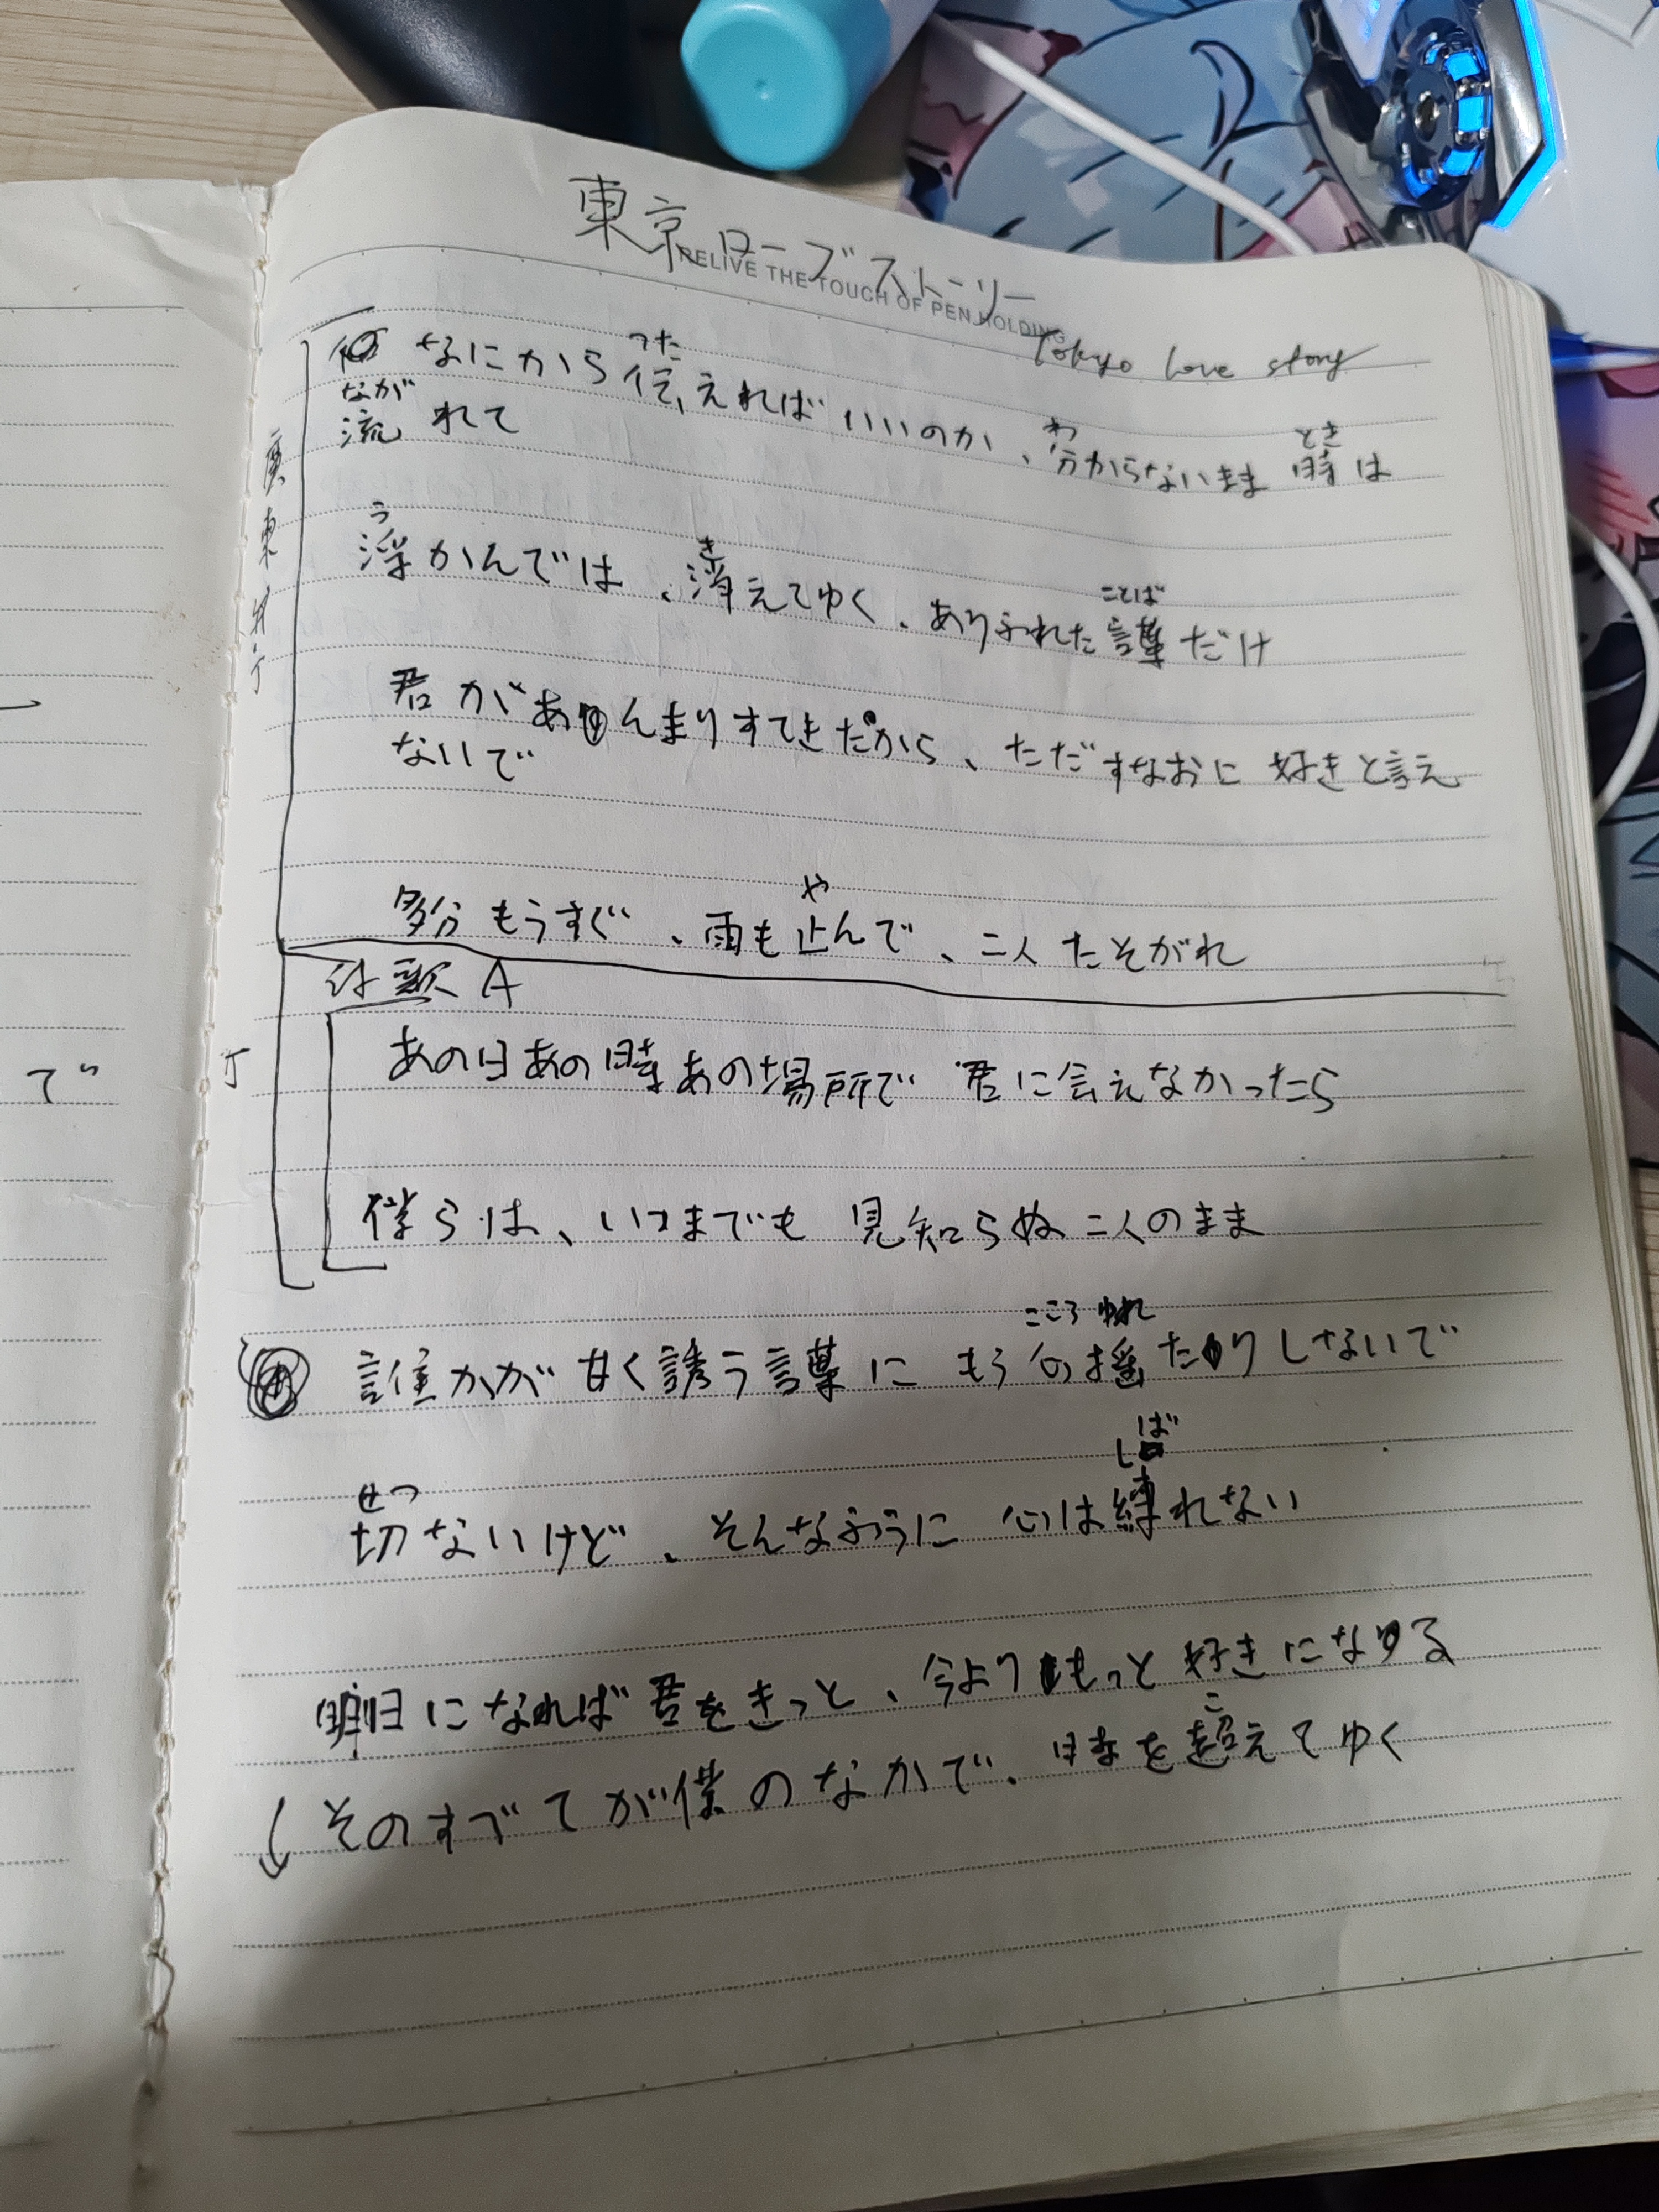 東京ローブストーリー
RELIVE THE TOUCH OF PEN HOLDING
Tokyo Love story
つた
なにから伝えればいいのか、分からないまま 時は
わ
とき
なが
流れて
う
き
ことば
浮かんでは、消えてゆく、ありふれた言葉だけ
君があんまりすてきだから、ただすなおに 好きと言え
ないで
や
多分もうすぐ、雨も止んで、二人たそがれ
A
あの日あの時あの場所で 君に会えなかったら
僕らは、いつまでも 見知らぬ二人のまま
こころ ゆれ
誰かが甘く誘う言葉に もう心揺たりしないで
しば
せつ
切ないけど、そんなふうに 心は縛れない
明日になれば君をきっと、今よりもっと 好きになる
こ
↓ そのすべてが僕のなかで、時を超えてゆく
で